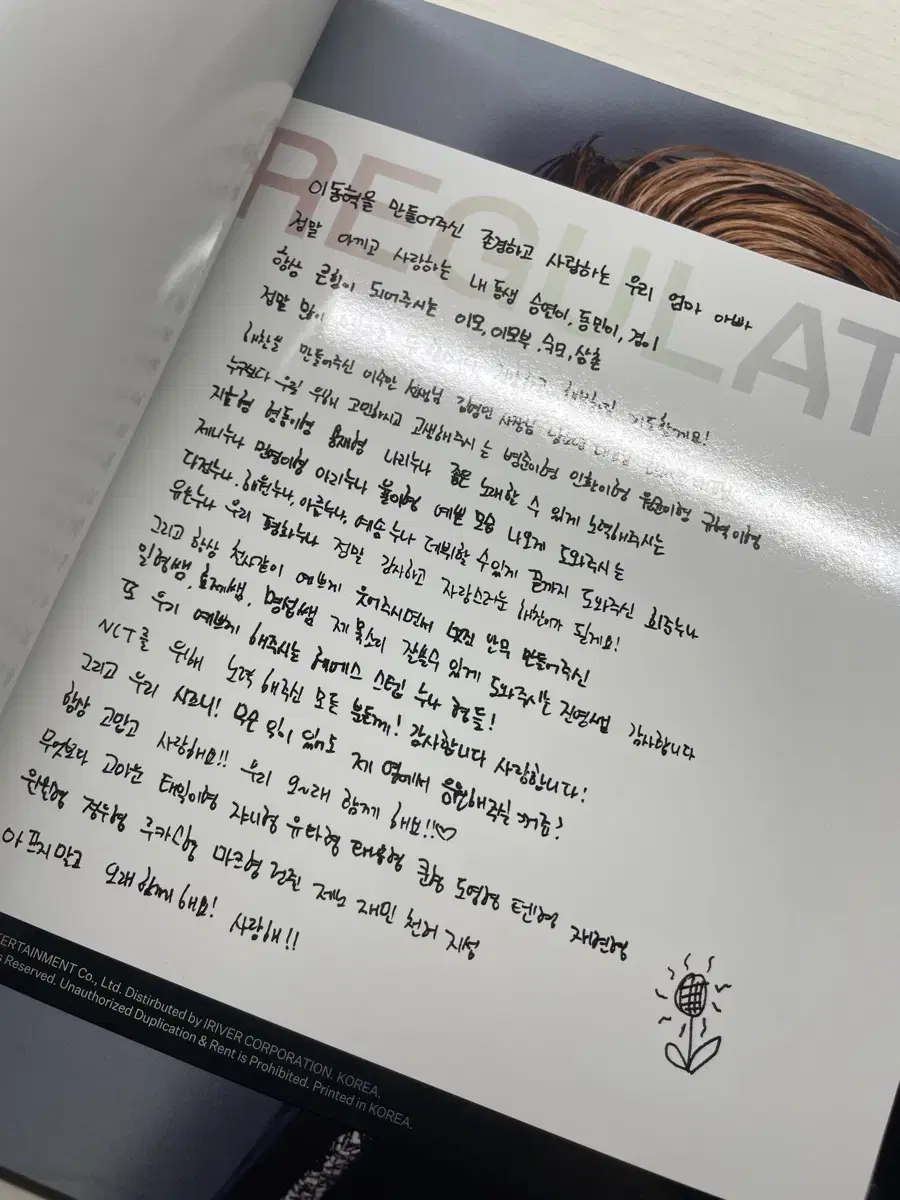 REGULAT
이동혁을 만들어주신 존경하고 사랑하는 우리 엄마 아빠
정말 아끼고 사랑하는 내 동생 승연이, 동민이, 겸이
항상 큰힘이 되어주시는 이모, 이모부, 숙모, 삼촌
정말 많이 기도할게요!
해찬을 만들어주신 이수만 선생님 김영민 사장님
누구보다 우릴 위해 고민하시고 고생해주시는 병준이형 인환이형 규혁이형
지호형 형동이형 용재형 나리누나 좋은 노래할 수 있게 노력해주시는
제니누나 민경이형 아리누나 불이형 예쁜 모습 나오게 도와주시는
다정누나, 하원누나, 아름누나, 예솜누나 데뷔할 수있게 끝까지 도와주신 희주누나
유은누나 우리 평화누나 정말 감사하고 자랑스러운 해찬이가 될게요!
그리고 항상 천사같이 예쁘게 웃어주시면서 멋진 안무 만들어주신
일형쌤, 효제쌤, 명섭쌤 제 목소리 잘쓸수 있게 도와주시는 진영쌤 감사합니다
또 우리 예쁘게 해주시는 헤메스 스텝 누나 형들!
NCT를 위해 노력 해주신 모든 분들께! 감사합니다 사랑합니다!
그리고 우리 시즈니! 무슨 일이 있어도 제 옆에서 응원해주실 거죠?
항상 고맙고 사랑해요!! 우리 오~래 함께 해요!!♡
무엇보다 고마운 태일이형 쟈니형 유타형 태용형 쿤형 도영형 텐형 재현형
윈윈형 정우형 루카스형 마크형 런쥔 제노 재민 천러 지성
아프지말고 오래 함께 해요! 사랑해!!
ERTAINMENT Co., Ltd. Distirbuted by IRIVER CORPORATION. KOREA.
s Reserved. Unauthorized Duplication & Rent is Prohibited. Printed in KOREA.